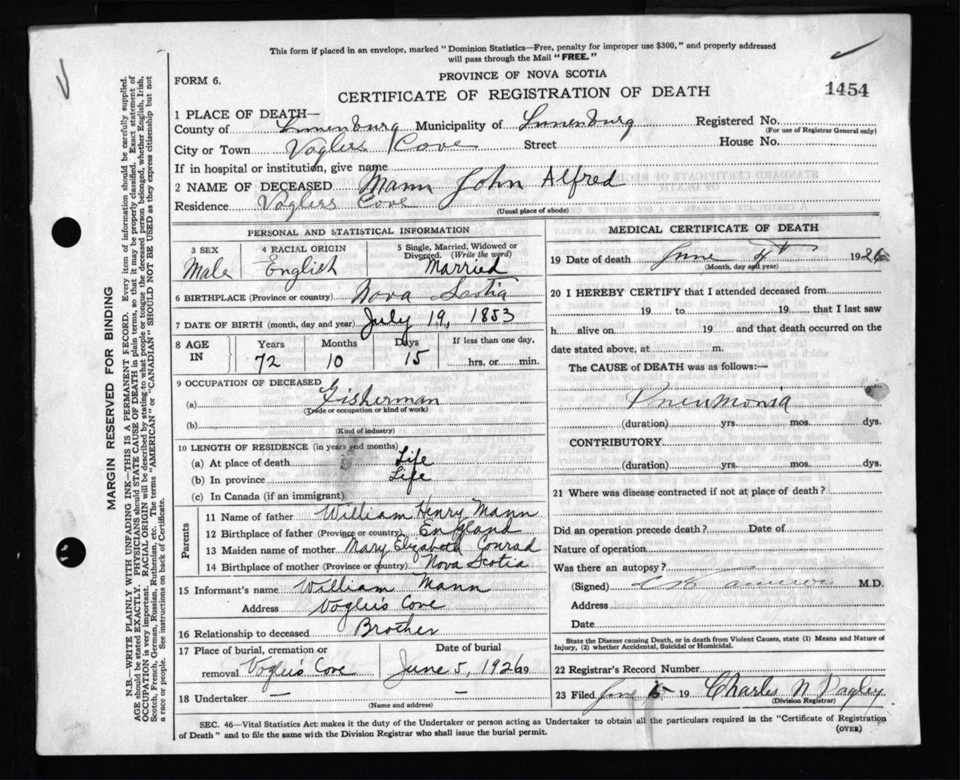 This form if placed in an envelope, marked "Dominion Statistics—Free, penalty for improper use $300," and properly addressed
will pass through the Mail "FREE."
FORM 6.
PROVINCE OF NOVA SCOTIA
CERTIFICATE OF REGISTRATION OF DEATH
1454
1 PLACE OF DEATH—
County of Lunenburg Municipality of Lunenburg Registered No.
(For use of Registrar General only)
City or Town Voglers Cove Street House No.
If in hospital or institution, give name
2 NAME OF DECEASED Mann John Alfred
Residence Voglers Cove
(Usual place of abode)
PERSONAL AND STATISTICAL INFORMATION
3 SEX Male
4 RACIAL ORIGIN English
5 Single, Married, Widowed or Divorced. (Write the word) Married
6 BIRTHPLACE (Province or country) Nova Scotia
7 DATE OF BIRTH (month, day and year) July 19, 1853
8 AGE IN Years 72 Months 10 Days 15 If less than one day, hrs. or min.
9 OCCUPATION OF DECEASED
(a) Fisherman
(Trade or occupation or kind of work)
(b)
(Kind of industry)
10 LENGTH OF RESIDENCE (in years and months)
(a) At place of death Life
(b) In province Life
(c) In Canada (if an immigrant)
Parents
11 Name of father William Henry Mann
12 Birthplace of father (Province or country) England
13 Maiden name of mother Mary Elizabeth Conrad
14 Birthplace of mother (Province or country) Nova Scotia
15 Informant's name William Mann
Address Voglers Cove
16 Relationship to deceased Brother
17 Place of burial, cremation or removal Voglers Cove
Date of burial June 5, 1926 19
18 Undertaker — —
(Name and address)
MEDICAL CERTIFICATE OF DEATH
19 Date of death June 4th 1926
(Month, day and year)
20 I HEREBY CERTIFY that I attended deceased from
19 to 19 that I last saw
h alive on 19 and that death occurred on the
date stated above, at m.
The CAUSE of DEATH was as follows:—
Pneumonia
(duration) yrs. mos. dys.
CONTRIBUTORY
(duration) yrs. mos. dys.
21 Where was disease contracted if not at place of death?
Did an operation precede death? Date of
Nature of operation
Was there an autopsy?
(Signed) M.D.
Address
Date
State the Disease causing Death, or in death from Violent Causes, state (1) Means and Nature of
Injury, (2) whether Accidental, Suicidal or Homicidal.
22 Registrar's Record Number
23 Filed June 19 Charles N
(Division Registrar)
SEC. 46—Vital Statistics Act: makes it the duty of the Undertaker or person acting as Undertaker to obtain all the particulars required in the "Certificate of Registration
of Death" and to file the same with the Division Registrar who shall issue the burial permit.
(OVER)
MARGIN RESERVED FOR BINDING
N.B.—WRITE PLAINLY WITH UNFADING INK—THIS IS A PERMANENT RECORD. Every item of information should be carefully supplied.
AGE should be stated EXACTLY. PHYSICIANS should STATE CAUSE OF DEATH in plain terms, so that it may be properly classified. Exact statement of
OCCUPATION is very important. RACIAL ORIGIN will be described by stating to what people or tongue the deceased person belonged, whether English, Irish,
Scotch, French, German, Russian, Ruthenian, etc. The terms "AMERICAN" or "CANADIAN" SHOULD NOT BE USED as they express citizenship but not
a race or people. See instructions on back of Certificate.